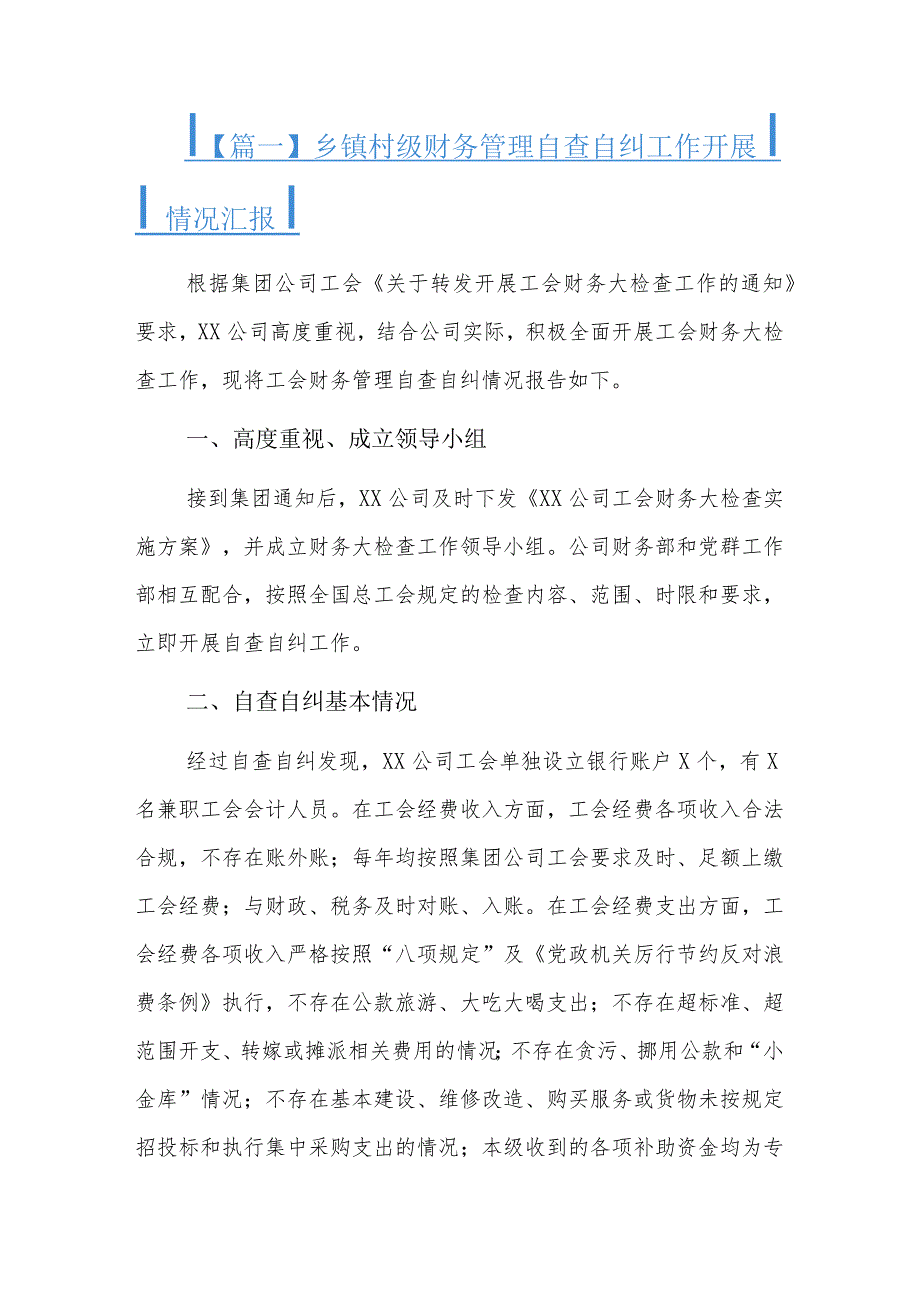 【篇一】乡镇村级财务管理自查自纠工作开展
情况汇报
根据集团公司工会《关于转发开展工会财务大检查工作的通知》
要求，XX公司高度重视，结合公司实际，积极全面开展工会财务大检
查工作，现将工会财务管理自查自纠情况报告如下。
一、高度重视、成立领导小组
接到集团通知后，XX公司及时下发《XX公司工会财务大检查实
施方案》，并成立财务大检查工作领导小组。公司财务部和党群工作
部相互配合，按照全国总工会规定的检查内容、范围、时限和要求，
立即开展自查自纠工作。
二、自查自纠基本情况
经过自查自纠发现，XX公司工会单独设立银行账户X个，有X
名兼职工会会计人员。在工会经费收入方面，工会经费各项收入合法
合规，不存在账外账；每年均按照集团公司工会要求及时、足额上缴
工会经费；与财政、税务及时对账、入账。在工会经费支出方面，工
会经费各项收入严格按照“八项规定”及《党政机关厉行节约反对浪
费条例》执行，不存在公款旅游、大吃大喝支出；不存在超标准、超
范围开支、转嫁或摊派相关费用的情况；不存在贪污、挪用公款和“小
金库”情况；不存在基本建设、维修改造、购买服务或货物未按规定
招投标和执行集中采购支出的情况；本级收到的各项补助资金均为专